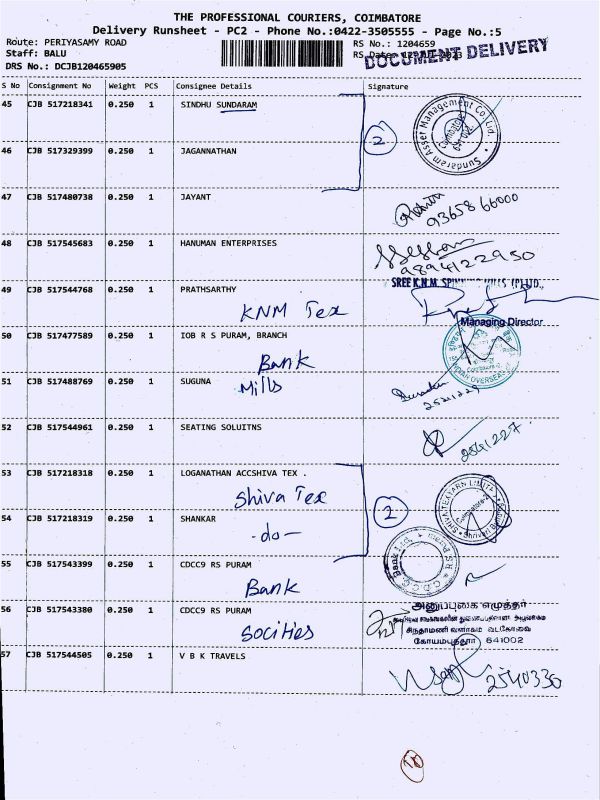 THE PROFESSIONAL COURIERS, COIMBATORE
Delivery Runsheet - PC2 - Phone No.:0422-3505555 - Page No.:5
Route: PERIYASAMY ROAD
Staff: BALU
DRS No.: DCJB120465905
RS No.: 1204659
RS Date
DOCUMENT DELIVERY
S No Consignment No Weight PCS Consignee Details Signature
45 CJB 517218341 0.250 1 SINDHU SUNDARAM
Sundaram Asset Management Co. Ltd.
2
46 CJB 517329399 0.250 1 JAGANNATHAN
47 CJB 517480738 0.250 1 JAYANT
93658 66000
48 CJB 517545683 0.250 1 HANUMAN ENTERPRISES
9894122950
49 CJB 517544768 0.250 1 PRATHSARTHY
KNM Tex
SREE K.N.M. MILLS (P) LTD.,
Managing Director
50 CJB 517477589 0.250 1 IOB R S PURAM, BRANCH
Bank
51 CJB 517488769 0.250 1 SUGUNA
Mills
52 CJB 517544961 0.250 1 SEATING SOLUITNS
2541227
53 CJB 517218318 0.250 1 LOGANATHAN ACCSHIVA TEX .
Shiva Tex
2
SHIVA TEXYARN LIMITED
54 CJB 517218319 0.250 1 SHANKAR
-do-
55 CJB 517543399 0.250 1 CDCC9 RS PURAM
Bank
56 CJB 517543380 0.250 1 CDCC9 RS PURAM
Socities
அனுப்புகை எழுத்தர்
சிந்தாமணி வளாகம் வடகோவை
கோயம்புத்தூர் 641002
57 CJB 517544505 0.250 1 V B K TRAVELS
2540330